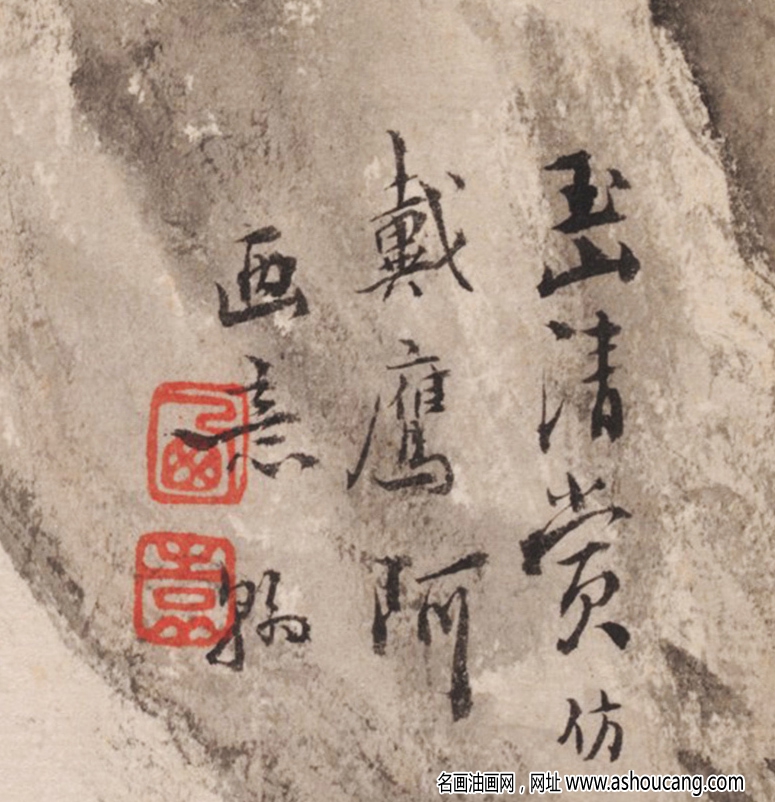 玉山清赏仿
戴鹰阿
画意翰
名画油画网，网址 www.ashoucang.com